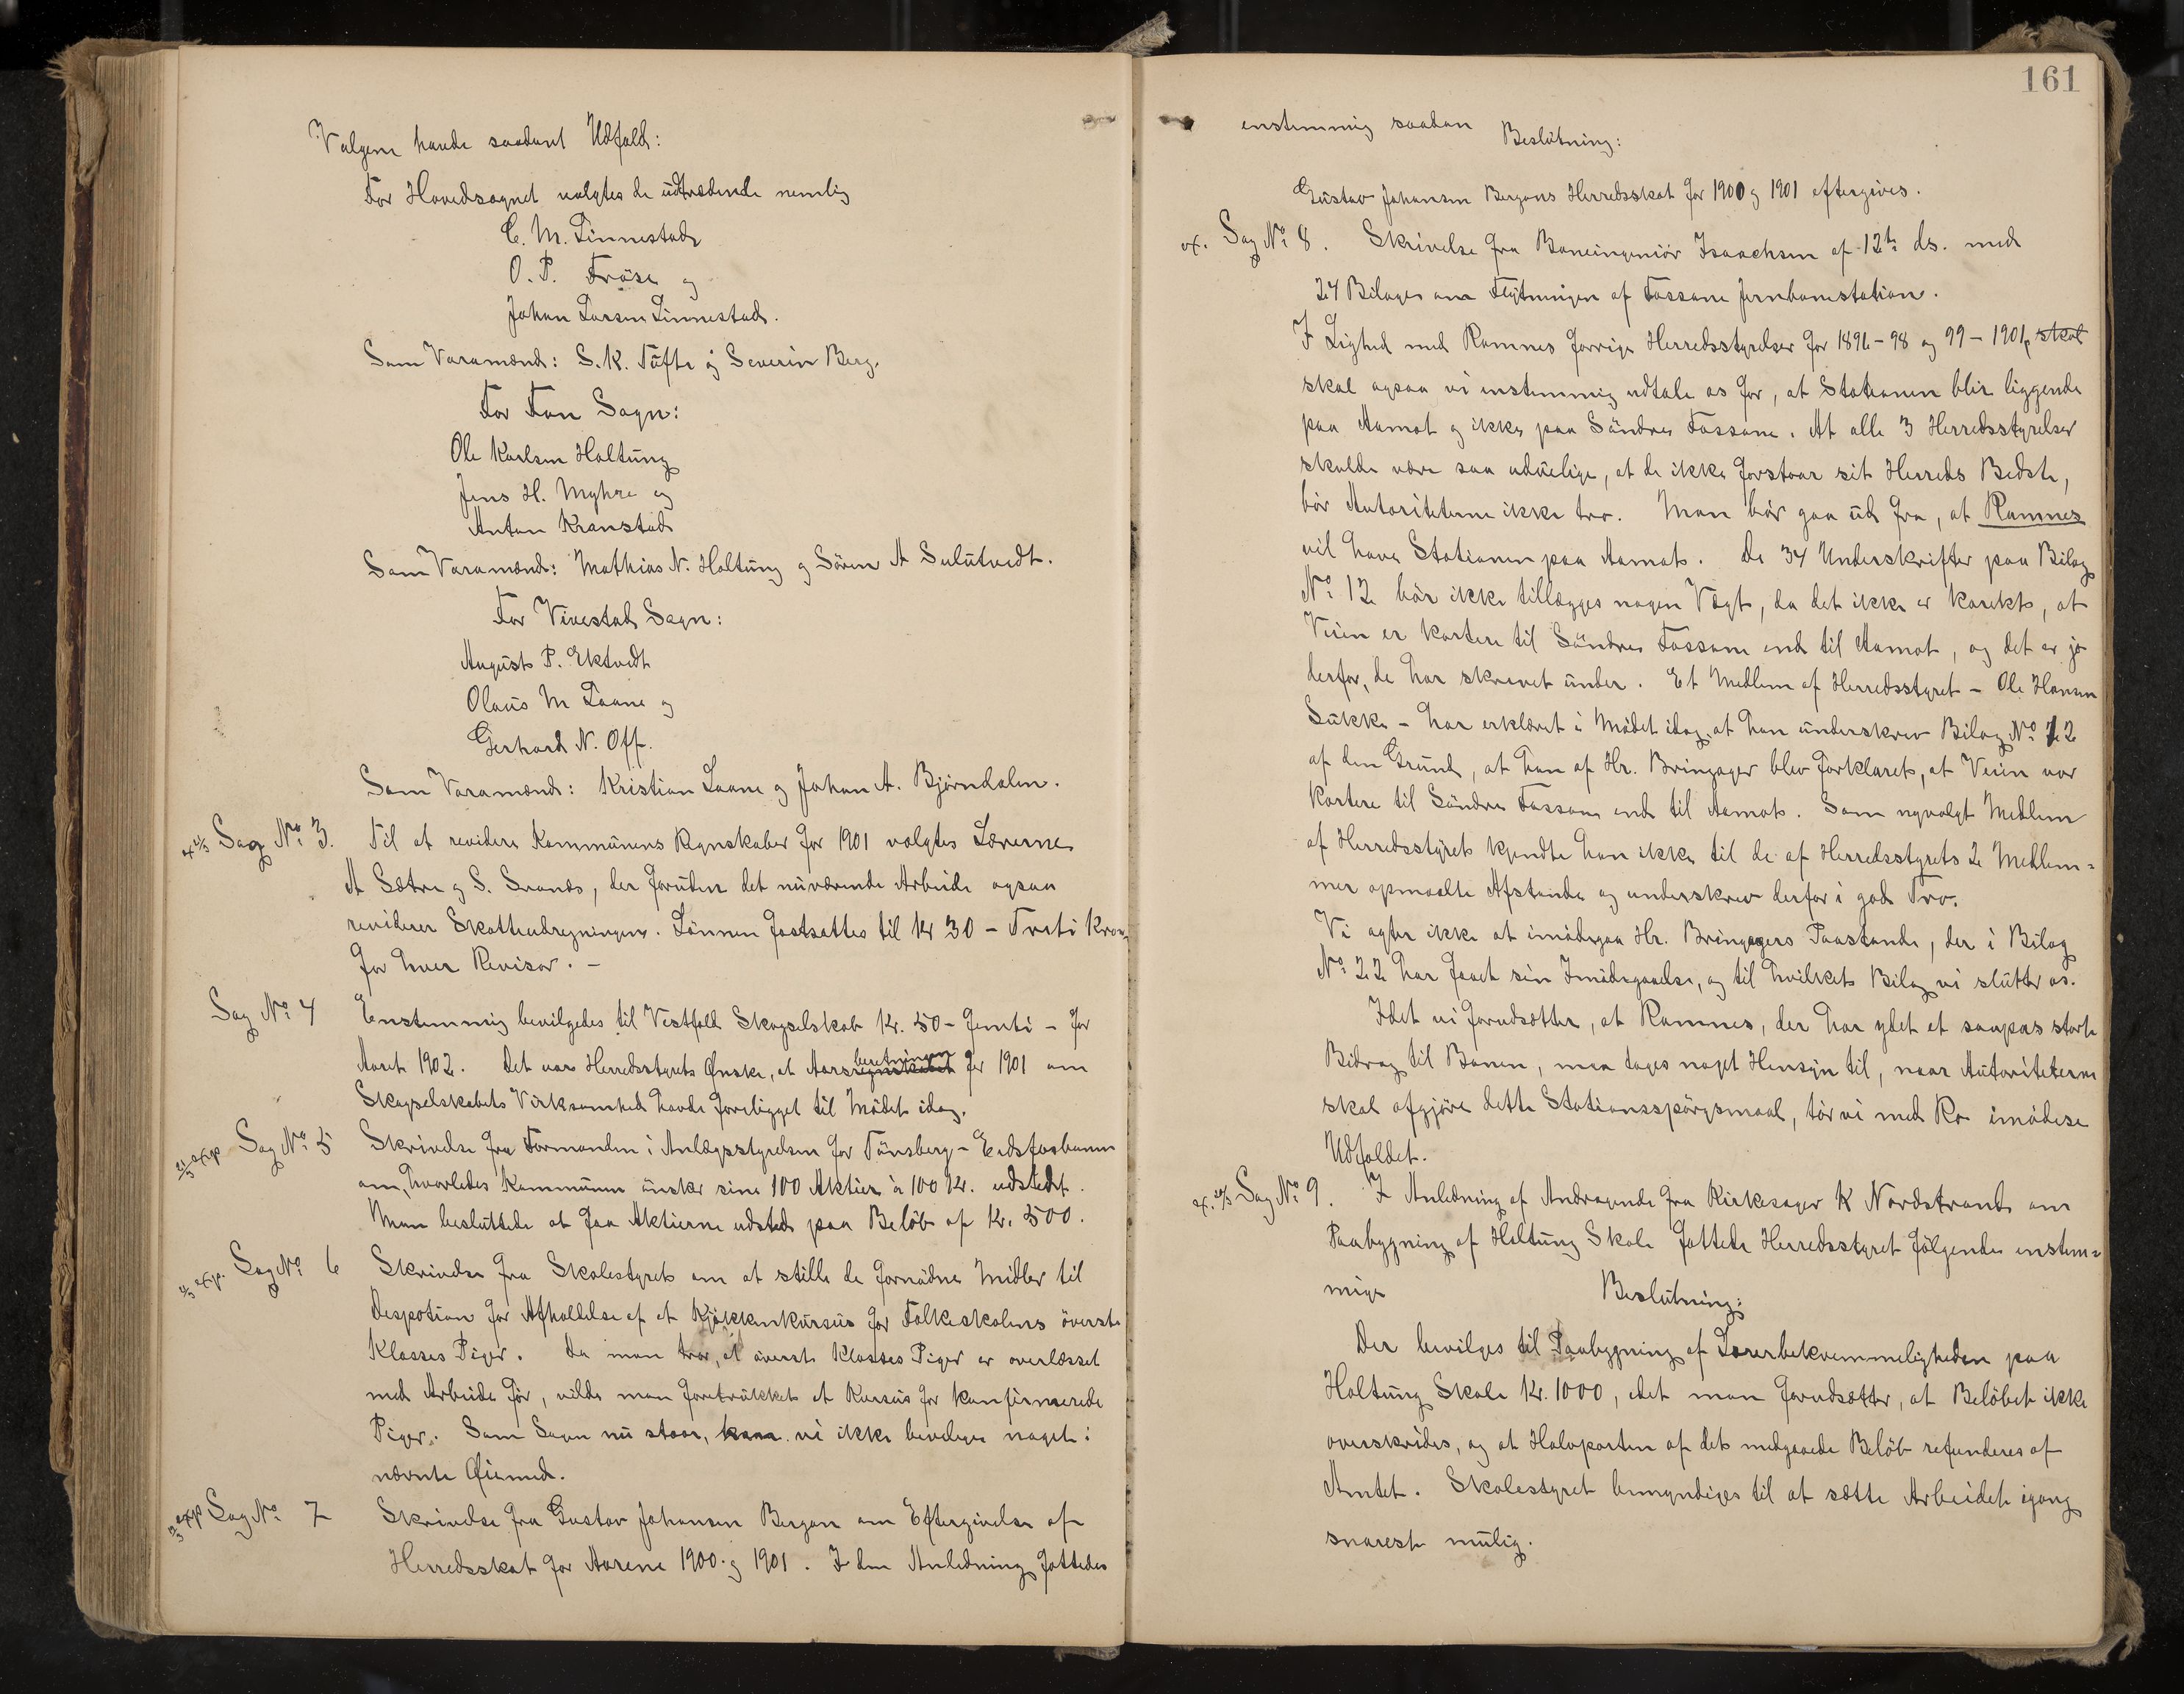 Valgene havde saadant Udfald:
For Hovedsognet valgtes de udtrædende nemlig
C. M. Linnestad
O. P. Fröse og
Johan Larsen Linnestad.
Som Varamænd: S. K. Tufte og Severin Berg.
For Fon Sogn:
Ole Karlsen Holtung
Jens H. Myhre og
Anton Kranstad
Som Varamænd: Mathias N. Holtung og Sören A Sulutvedt.
For Vivestad Sogn:
August P. Ektvedt
Olaus M Laane og
Gerhard N. Off.
Som Varamænd: Kristian Laane og Johan A. Bjørndalen.
Sag No 3. Til at revidere Kommunens Regnskaber for 1901 valgtes Lærerne
A Sætre og S. Svanæs, der foruden det nuværende Arbeide ogsaa
reviderer Skatteudregningen. Lönnen fastsattes til Kr 30 - Treti Kron
for hver Revisor. -
Sag No 4 Enstemmig bevilgedes til Vestfold Skogselskab Kr. 50 - femti - for
Aaret 1902. Det var Herredsstyrets Ønske, at Aarsregnskabet beretningen for 1901 om
Skogselskabets Virksomhed havde foreligget til Mödet idag.
exp Sag No 5 Skrivelse fra Formanden i Anlægsstyrelsen for Tönsberg-Eidsfosbanen
om, hvorledes Kommunen önsker sine 100 Aktier à 100 Kr. udstedt.
Man besluttede at faa Aktierne udsted paa Belöb af Kr. 500.
exp. Sag No 6 Skrivelse fra Skolestyret om at stille de fornödne Midler til
Despotion for Afholdelse af et Kjökkenkursus for Folkeskolens överste
Klasses Piger. Da man tror, at överste Klasses Piger er overlæsset
med Arbeide för, vilde man foretrukket et Kursus for konfirmerede
Piger. Som Sagen nu staar, kan vi ikke bevilge noget i
nævnte Øiemed.
exp Sag No 7 Skrivelse fra Gustav Johansen Bergan om Eftergivelse af
Herredsskat for Aarene 1900 og 1901. I den Anledning fattedes
161
enstemmig saadan
Beslutning:
Gustav Johansen Bergans Herredsskat for 1900 og 1901 eftergives.
ex. Sag No 8. Skrivelse fra Baneingeniör Isaachsen af 12te ds. med
24 Bilager om Flytningen af Fossane Jernbanestation.
I Lighed med Ramnes forrige Herredsstyrelser for 1896-98 og 99-1901, skal
skal ogsaa vi enstemmig udtale os for, at Stationen blir liggende
paa Aamot og ikke paa Söndre Fossane. At alle 3 Herredsstyrelser
skulde være saa uduelige, at de ikke forstaar sit Herreds Bedste,
bör Autoriteterne ikke tro. Man bör gaa ud fra, at Ramnes
vil have Stationen paa Aamot. De 34 Underskrifter paa Bilag
No 12 bör ikke tillægges nogen Vægt, da det ikke er korekt, at
Veien er kortere til Söndre Fossane end til Aamot, og det er jo
derfor, de har skrevet under. Et Medlem af Herredsstyret - Ole Hansen
Sukke - har erklæret i Mödet idag, at han underskrev Bilag No 12
af den Grund, at han af Hr. Bringager blev forklaret, at Veien var
kortere til Söndre Fossane end til Aamot. Som nyvalgt Medlem
af Herredsstyret kjendte han ikke til de af Herredsstyrets 2 Medlem=
mer opmaalte Afstande og underskrev derfor i god Tro.
Vi agter ikke at imödegaa Hr. Bringagers Paastande, der i Bilag
No 22 har faaet sin Imödegaaelse, og til hvilket Bilag vi slutter os.
Idet vi forudsætter, at Ramnes, der har ydet et saapas stort
Bidrag til Banen, maa tages noget Hensyn til, naar Autoriteterne
skal afgjöre dette Stationsspörgsmaal, tör vi med Ro imödese
Udfaldet.
ex. Sag No 9. I Anledning af Andragende fra Kirkesager K Nordstrand om
Paabygning af Holtung Skole fattede Herredsstyret fölgende enstem=
mige Beslutning:
Der bevilges til Paabygning af Lærerbekvemmeligheden paa
Holtung Skole Kr. 1000, idet man forudsætter, at Belöbet ikke
overskrides, og at Halvparten af det medgaaede Belöb refunderes af
Amtet. Skolestyret bemyndiges til at sætte Arbeidet igang
snarest mulig.